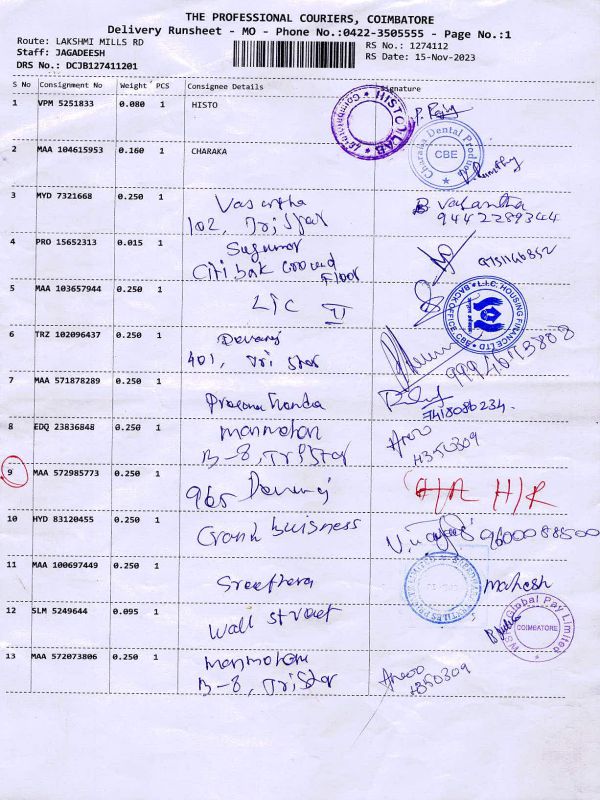 THE PROFESSIONAL COURIERS, COIMBATORE
Delivery Runsheet - MO - Phone No.:0422-3505555 - Page No.:1
Route: LAKSHMI MILLS RD
RS No.: 1274112
Staff: JAGADEESH
RS Date: 15-Nov-2023
DRS No.: DCJB127411201
S No Consignment No Weight PCS Consignee Details Signature
1 VPM 5251833 0.080 1 HISTO
HISTO LAB
2 MAA 104615953 0.160 1 CHARAKA
Charaka Dental Products
CBE
3 MYD 7321668 0.250 1 Vasantha
102, Tri Star
Vasantha
9442289344
4 PRO 15652313 0.015 1 Sugumar
Citi bak Ground
Floor
5 MAA 103657944 0.250 1 LIC II
L.I.C. HOUSING FINANCE LTD
BACK OFFICE CBE
6 TRZ 102096437 0.250 1 Devaraj
401, Tri Star
7 MAA 571878289 0.250 1
7418086234.
8 EDQ 23836848 0.250 1 Manmohan
B-8, TriStar
H350309
9 MAA 572985773 0.250 1 965 Devaraj
H/R
10 HYD 83120455 0.250 1 Crank buisness
9600088500
11 MAA 100697449 0.250 1 Sreethera
Mahesh
12 SLM 5249644 0.095 1 Wall street
Global Pay Limited
COIMBATORE
13 MAA 572073806 0.250 1 Manmohan
B-8, Tri Star
H350309